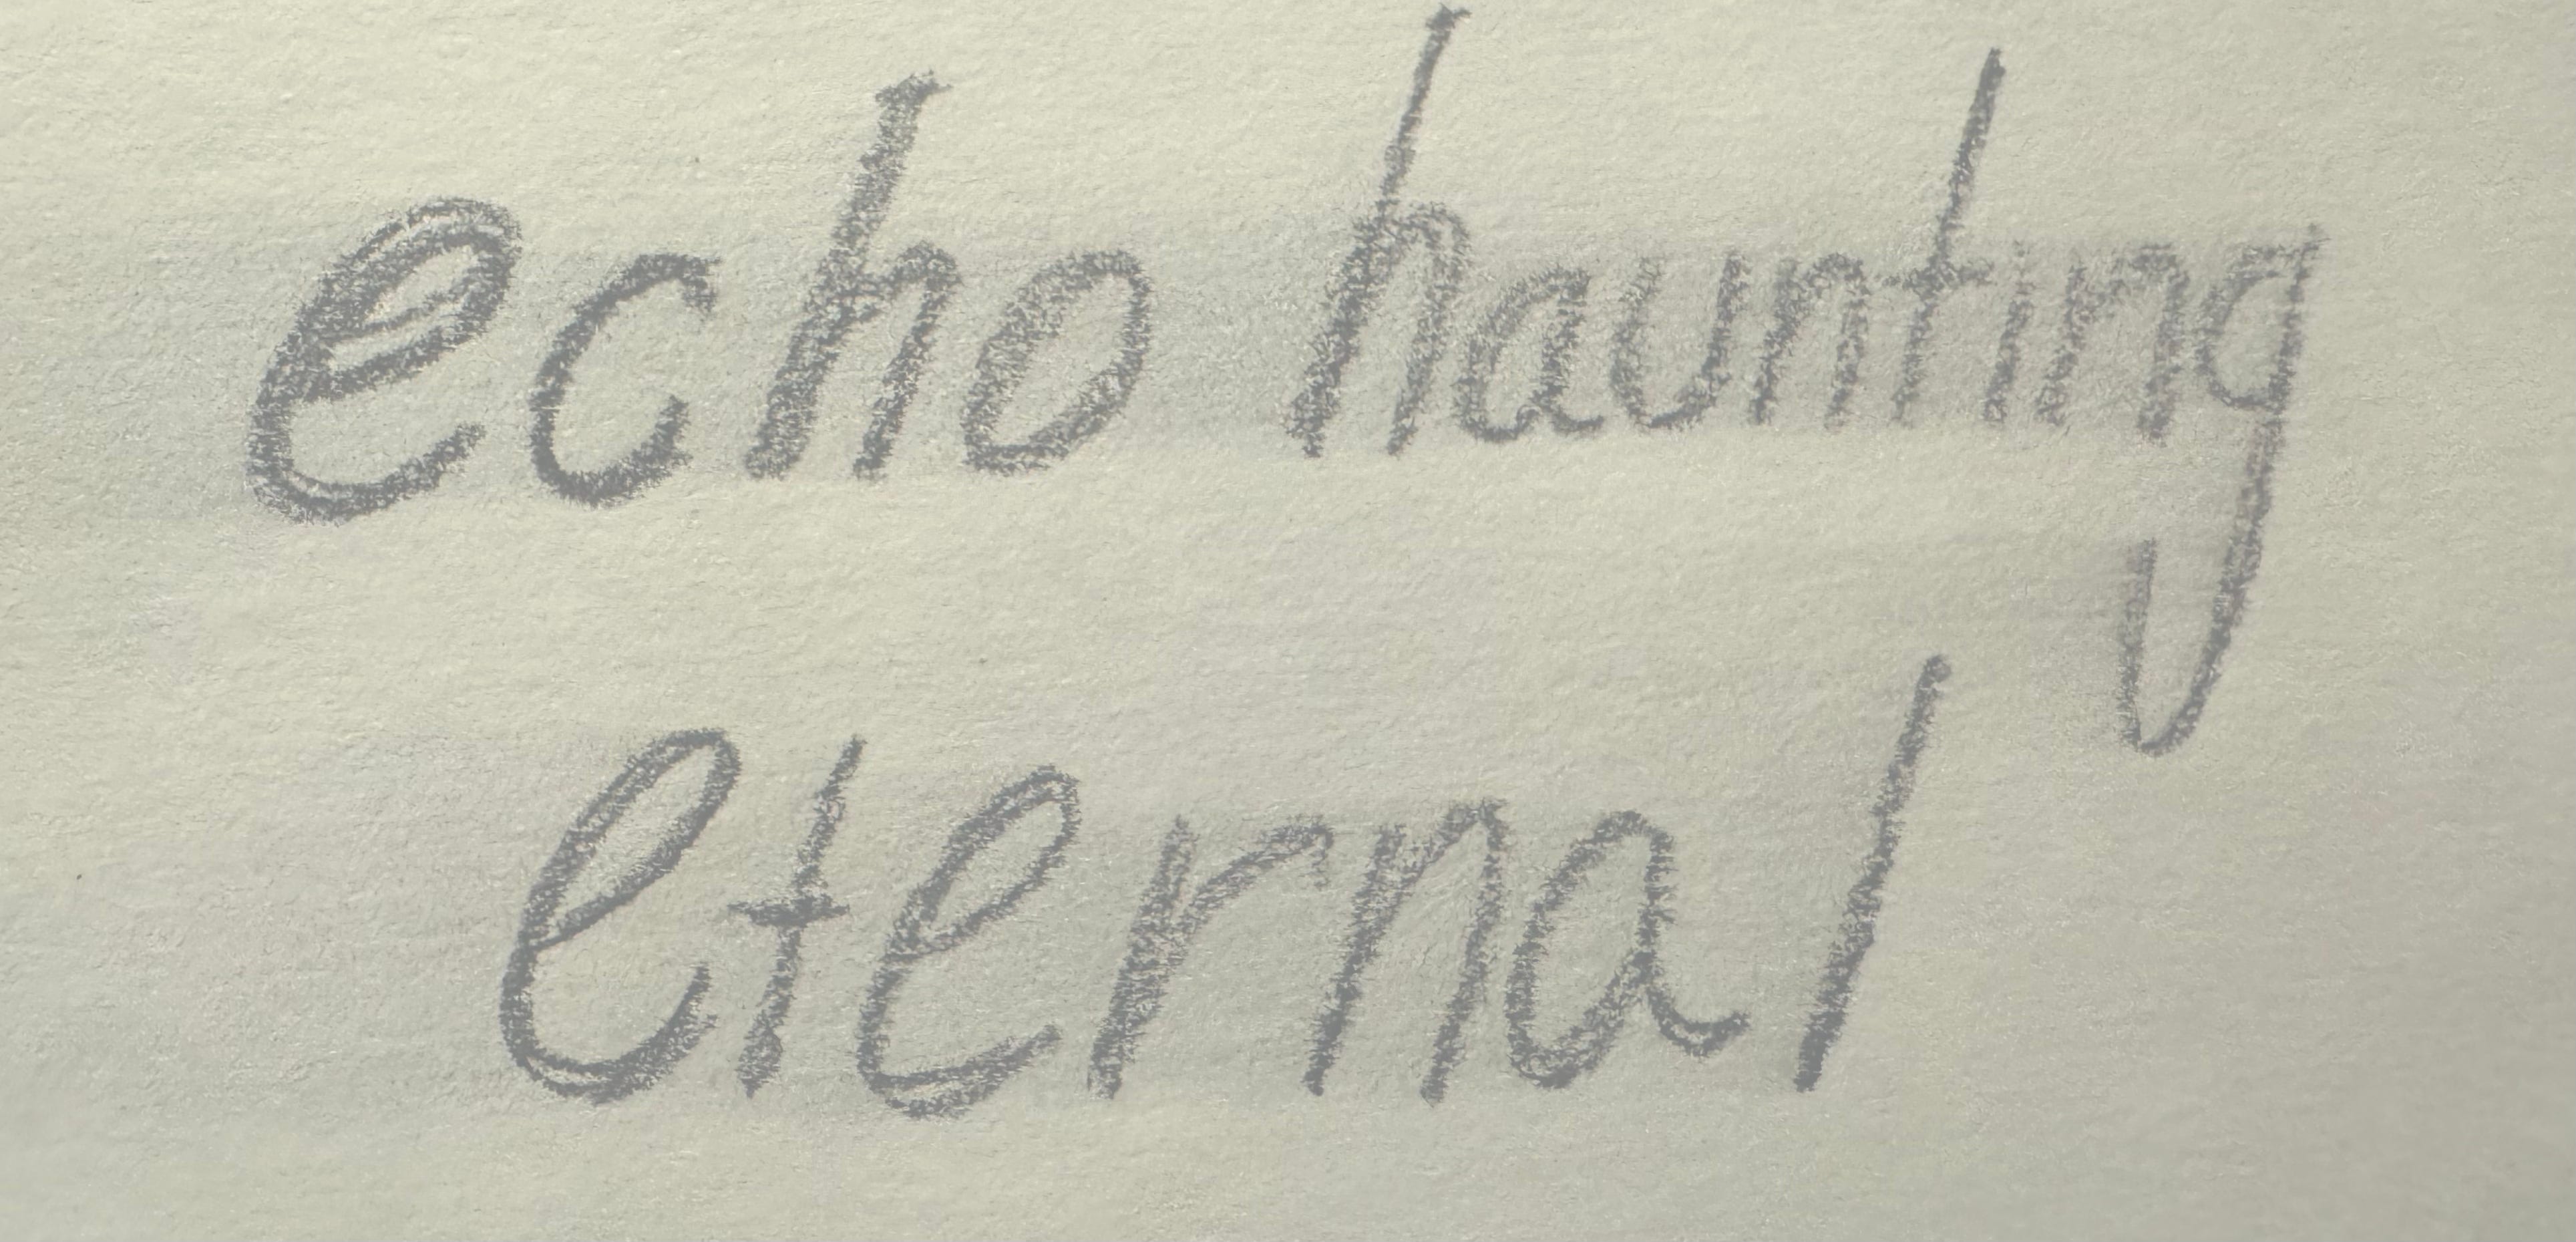 echo haunting
eternal